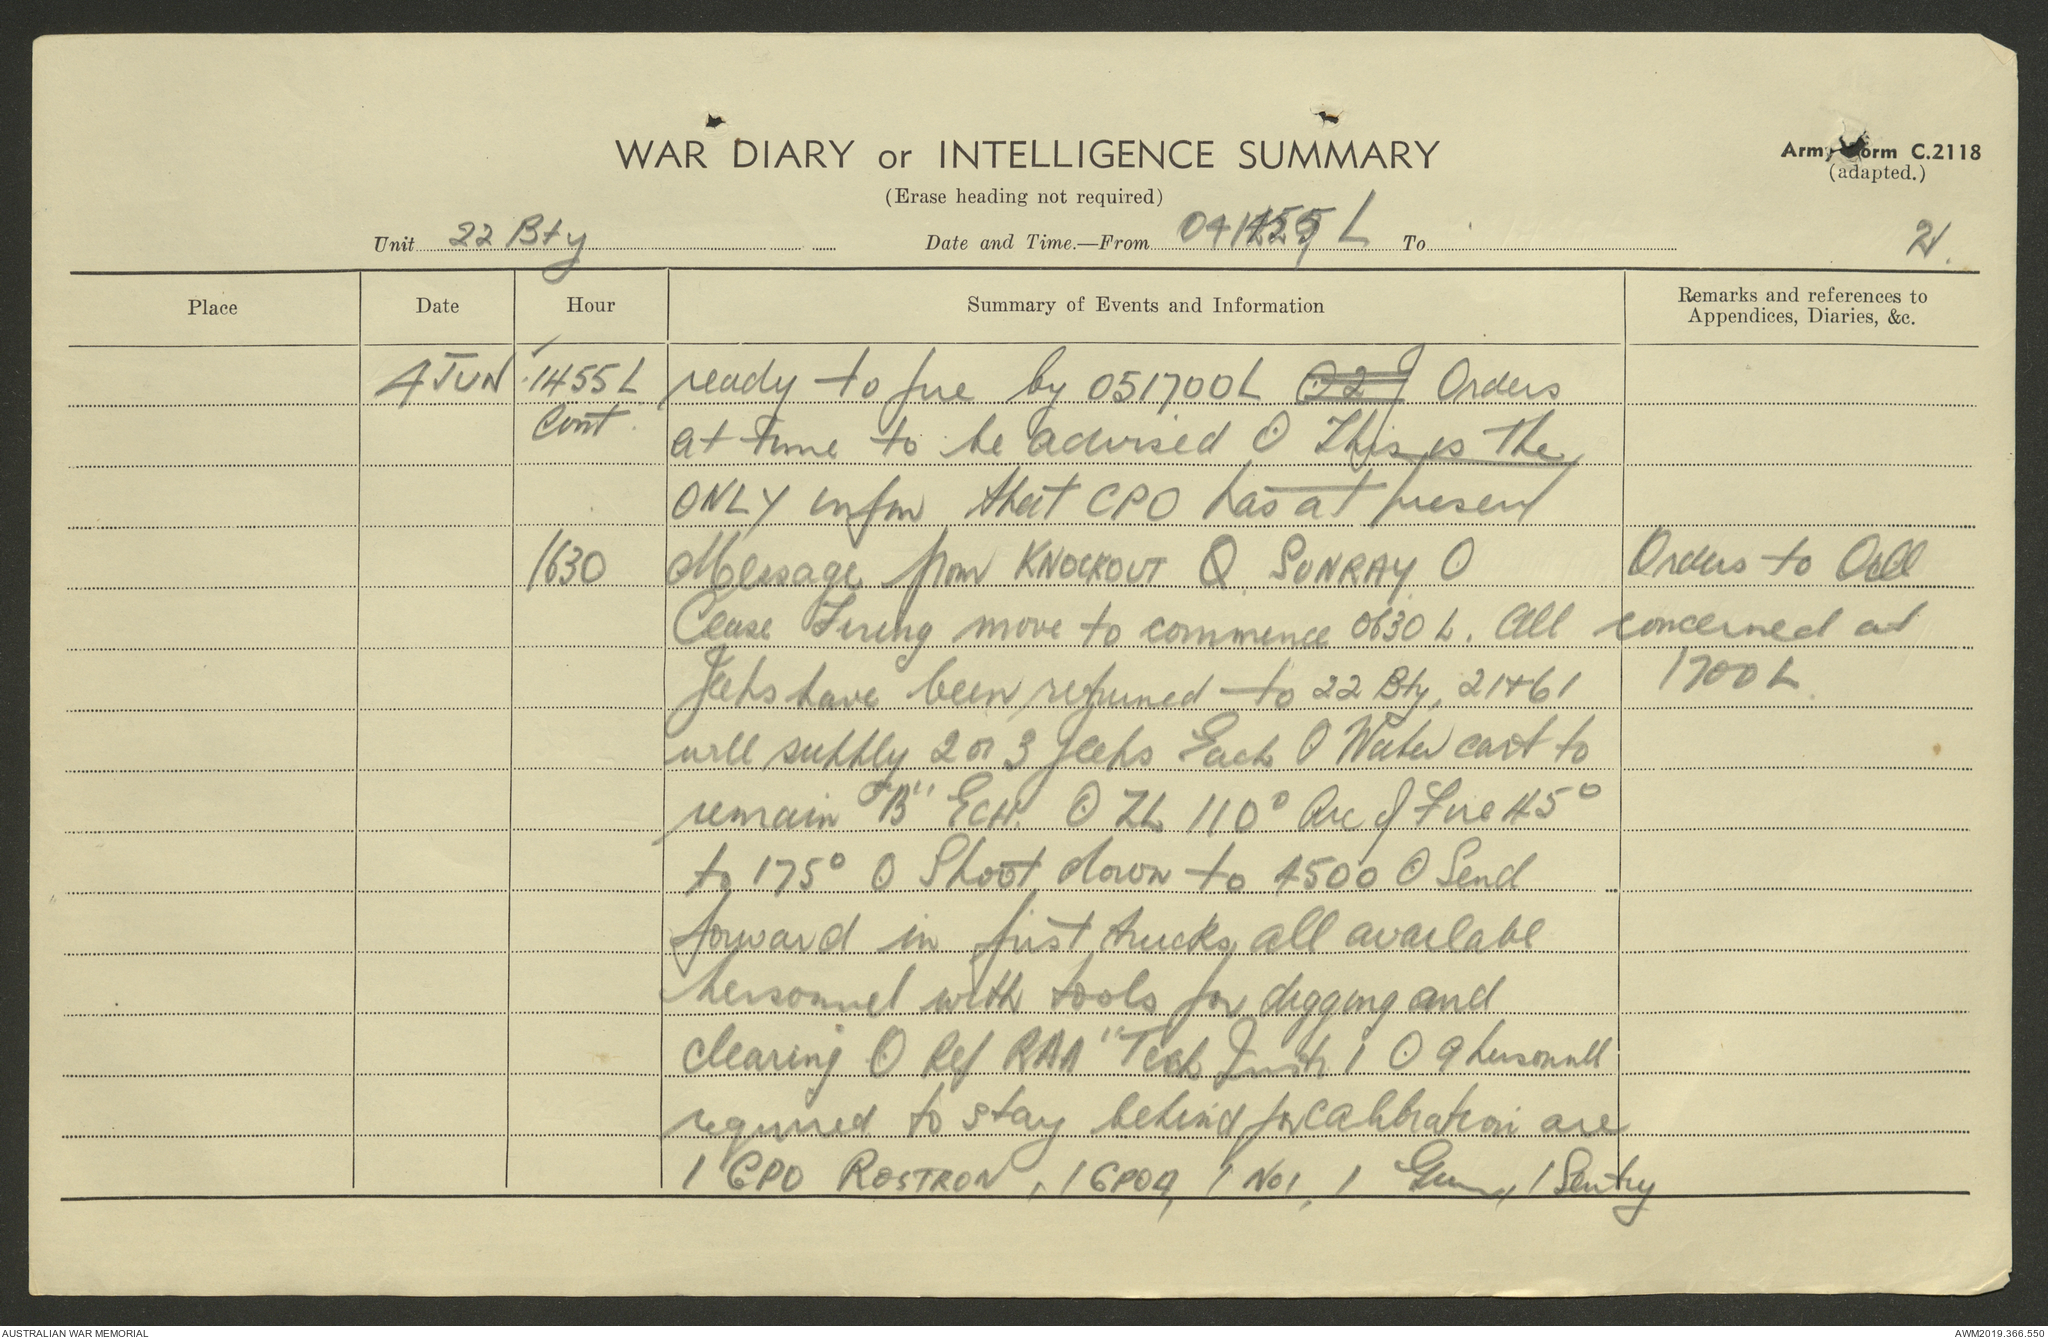 WAR DIARY or INTELLIGENCE SUMMARY
(Erase heading not required)
Army Form C.2118
(adapted.)
Unit 22 Bty Date and Time.—From 041455 L To
2.
Place Date Hour Summary of Events and Information Remarks and references to Appendices, Diaries, &c.
4 JUN 1455 L ready to fire by 051700L Orders
Cont. at time to be advised ⊙ This is the
ONLY infm that CPO has at present
1630 Message from KNOCKOUT SUNRAY ⊙ Orders to all
Cease Firing move to commence 0630 L. All concerned at
Jeeps have been returned to 22 Bty, 21+61 1700L
will supply 2 or 3 Jeeps Each ⊙ Water cart to
remain "B" Ech. ⊙ ZL 110° Arc of Fire 45°
to 175° ⊙ Shoot down to 4500 ⊙ Send
forward in first trucks all availabe
personnel with tools for digging and
clearing ⊙ Ref RAA "Tech Instr 1 ⊙ 9 personnel
required to stay behind for calibration are
1 GPO ROSTRON, 1 GPOA, 1 No1, 1 Gun, 1 Sentry
AUSTRALIAN WAR MEMORIAL
AWM2019.366.550